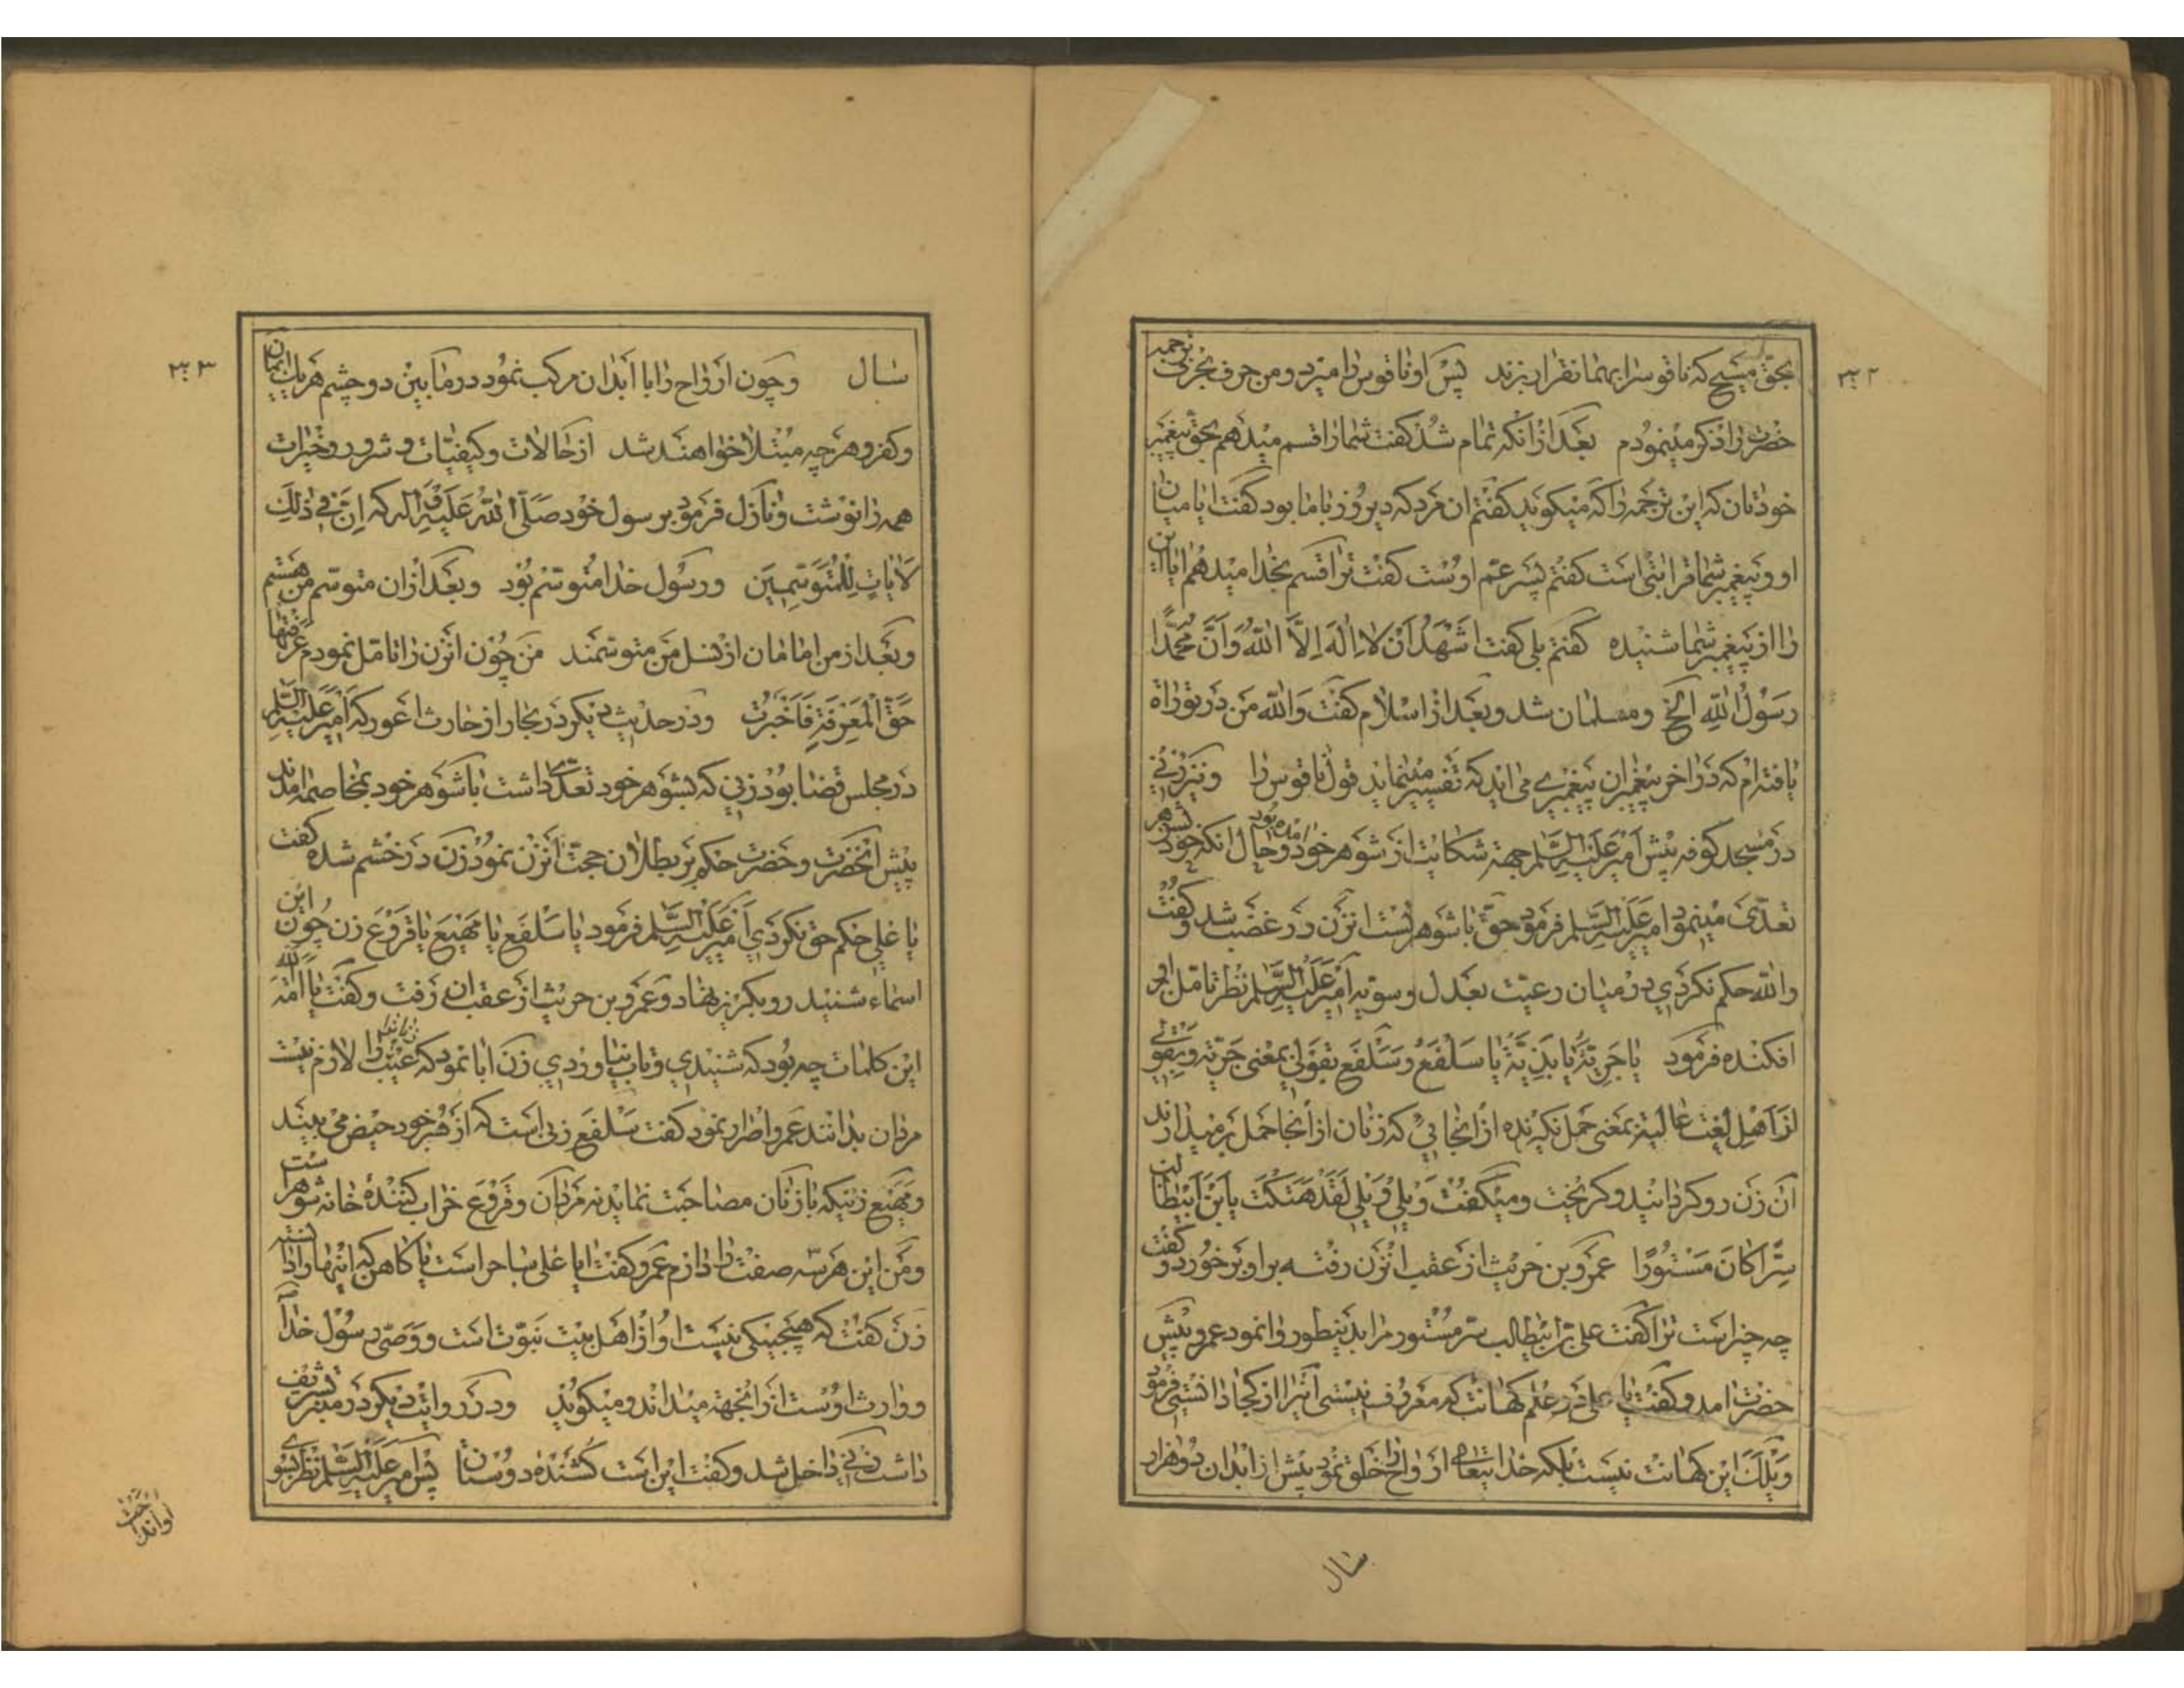 ۳۲۲
بحق مسیح که ناقوس را بهمانقرار بزند پس او ناقوس را میزد و من حرف بحرف ترجمه
حضرت را ذکر مینمودم بعد از آنکه تمام شد گفت شما را قسم میدهم بحق پیغمبر
خودتان که این ترجمه را که میگوید گفتم ان مرد که دیروز با ما بود گفت ایا میان
او و پیغمبر شما قرابتی است گفتم پسر عم اوست گفت ترا قسم بخدا میدهم ایا این
را از پیغمبر شما شنیده گفتم بلی گفت اشهد ان لا اله الا الله و ان محمدا
رسول الله الخ و مسلمان شد و بعد از اسلام گفت والله من در توراة
یافته‌ام که در اخر پیغمبران پیغمبری می‌اید که تفسیر مینماید قول ناقوس را و نیز زنی
در مسجد کوفه پیش امیر علیه السلم جهة شکایت از شوهر خود امده بود و حال انکه خود بشوهر
تعدی مینمود امیر علیه السلم فرمود حق با شوهر تست انزن در غضب شد و گفت
والله حکم نکردی در میان رعیت بعدل و سویه امیر علیه السلم نظر تامل باو
افکنده فرمود یا جریة یا بذیة یا سلفع و سلفع بقولی بمعنی جریة و بقولی
از اهل لغت عالیة بمعنی حمل نگیرنده از انجایی که زنان از انجا حمل برمیدارند
آن زن رو گردانید و گریخت و میگفت ویلی ویلی لقد هتکت یابن ابیطالب
سترا کان مستورا عمرو بن حریث از عقب انزن رفته براو برخورد و گفت
چه چیز است ترا گفت علی بن ابیطالب سر مستور مرا بدینطور وانمود عمرو پیش
حضرت امد و گفت یا علی در علم کهانت که معروف نیستی اینرا از کجا دانستی فرمود
ویلک این کهانت نیست بلکه خدا یتعالی ارواح را خلق نمود پیش از ابدان دو هزار
سال
۳۲۳
سال و چون ارواح را با ابدان مرکب نمود در ما بین دو چشم هر یک ایمان
و کفر و هر چه مبتلا خواهند شد از حالات و کیفیات و شرور و خیرات
همه را نوشت و نازل فرمود بر سول خود صلی الله علیه و اله که ان فی ذلک
لایات للمتوسمین و رسول خدا متوسم بود و بعد از ان متوسم من هستم
و بعد از من امامان از نسل من متوسمند من چون انزن را تامل نمودم عرفتها
حق المعرفة فاخبرت و در حدیث دیگر در بحار از حارث اعور که امیر علیه السلم
در مجلس قضا بود زنی که بشوهر خود تعدی داشت با شوهر خود بمخاصمه امدند
پیش انحضرت و حضرت حکم بر بطلان حجت انزن نمود زن در خشم شده گفت
یا علی حکم حق نکردی امیر علیه السلم فرمود یا سلفع یا مهیع یا قردع زن چون این
اسماء شنید رو بگریز نهاد و عمرو بن حریث از عقب ان رفت و گفت یا امة الله
این کلمات چه بود که شنیدی و تاب نیاوردی زن ابا نمود که عیب زنانرا لازم نیست
مردان بدانند عمرو اصرار نمود گفت سلفع زنی است که از قبر خود حیض می بیند
و مهیع زنیکه با زنان مصاحبت نماید نه مردان و قردع خراب کننده خانه شوهر است
و من این هر سه صفت را دارم عمرو گفت ایا علی ساحر است یا کاهن که اینها را دانسته
زن گفت که هیچیکی نیست او از اهل بیت نبوت است و وصی رسول خدا
و وارث اوست از انجهة میداند و میگوید و در روایت دیگر در منبر تشریف
داشت زنی داخل شد و گفت این است کشنده دوستان پس امیر علیه السلم نظر بسوی
او انداخت